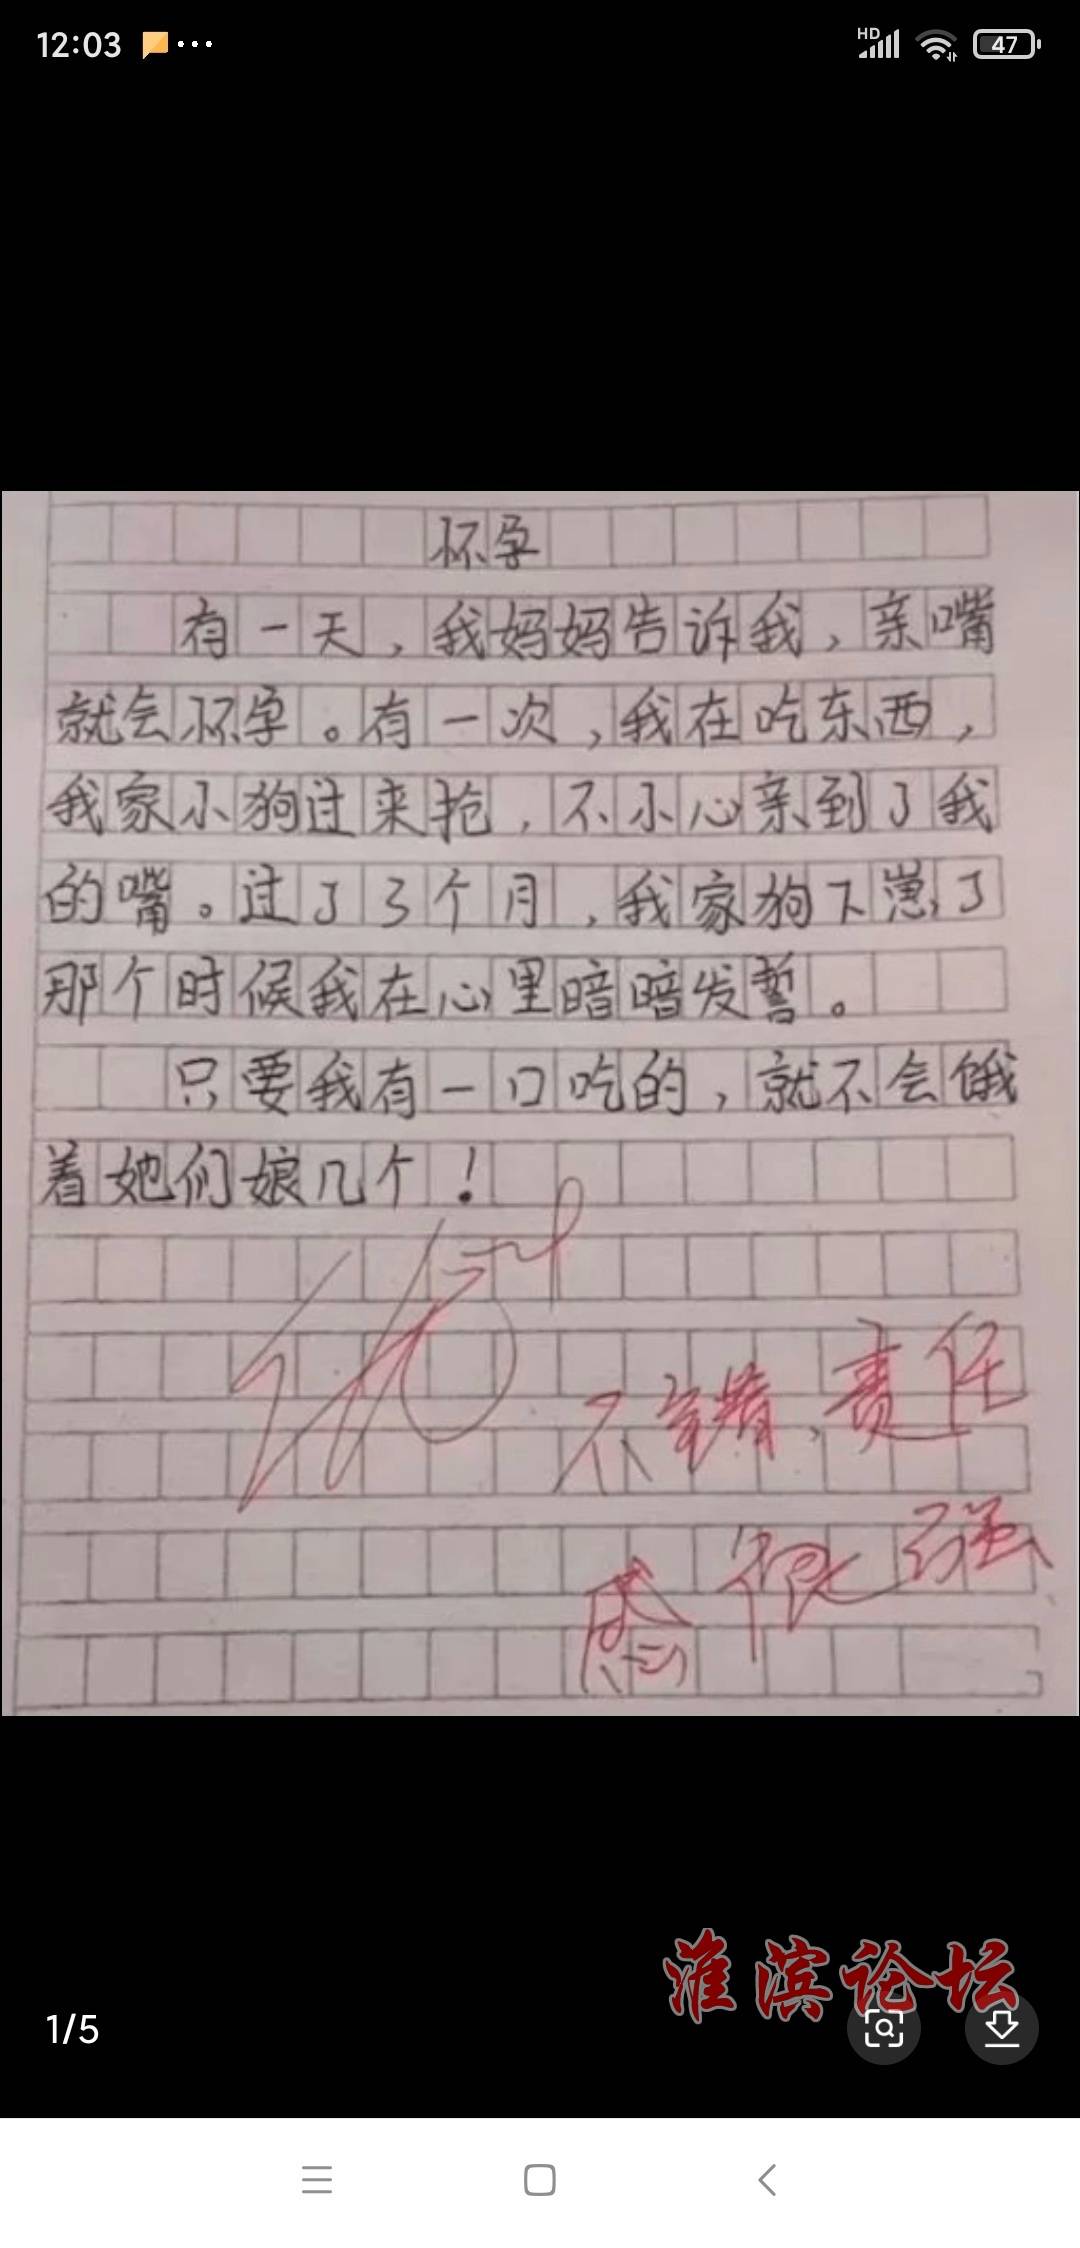 12:03
HD
47
怀孕
有一天，我妈妈告诉我，亲嘴
就会怀孕。有一次，我在吃东西，
我家小狗过来抢，不小心亲到了我
的嘴。过了3个月，我家狗下崽了
那个时候我在心里暗暗发誓。
只要我有一口吃的，就不会饿
着她们娘几个！
不错，责任
感很强
淮滨论坛
1/5